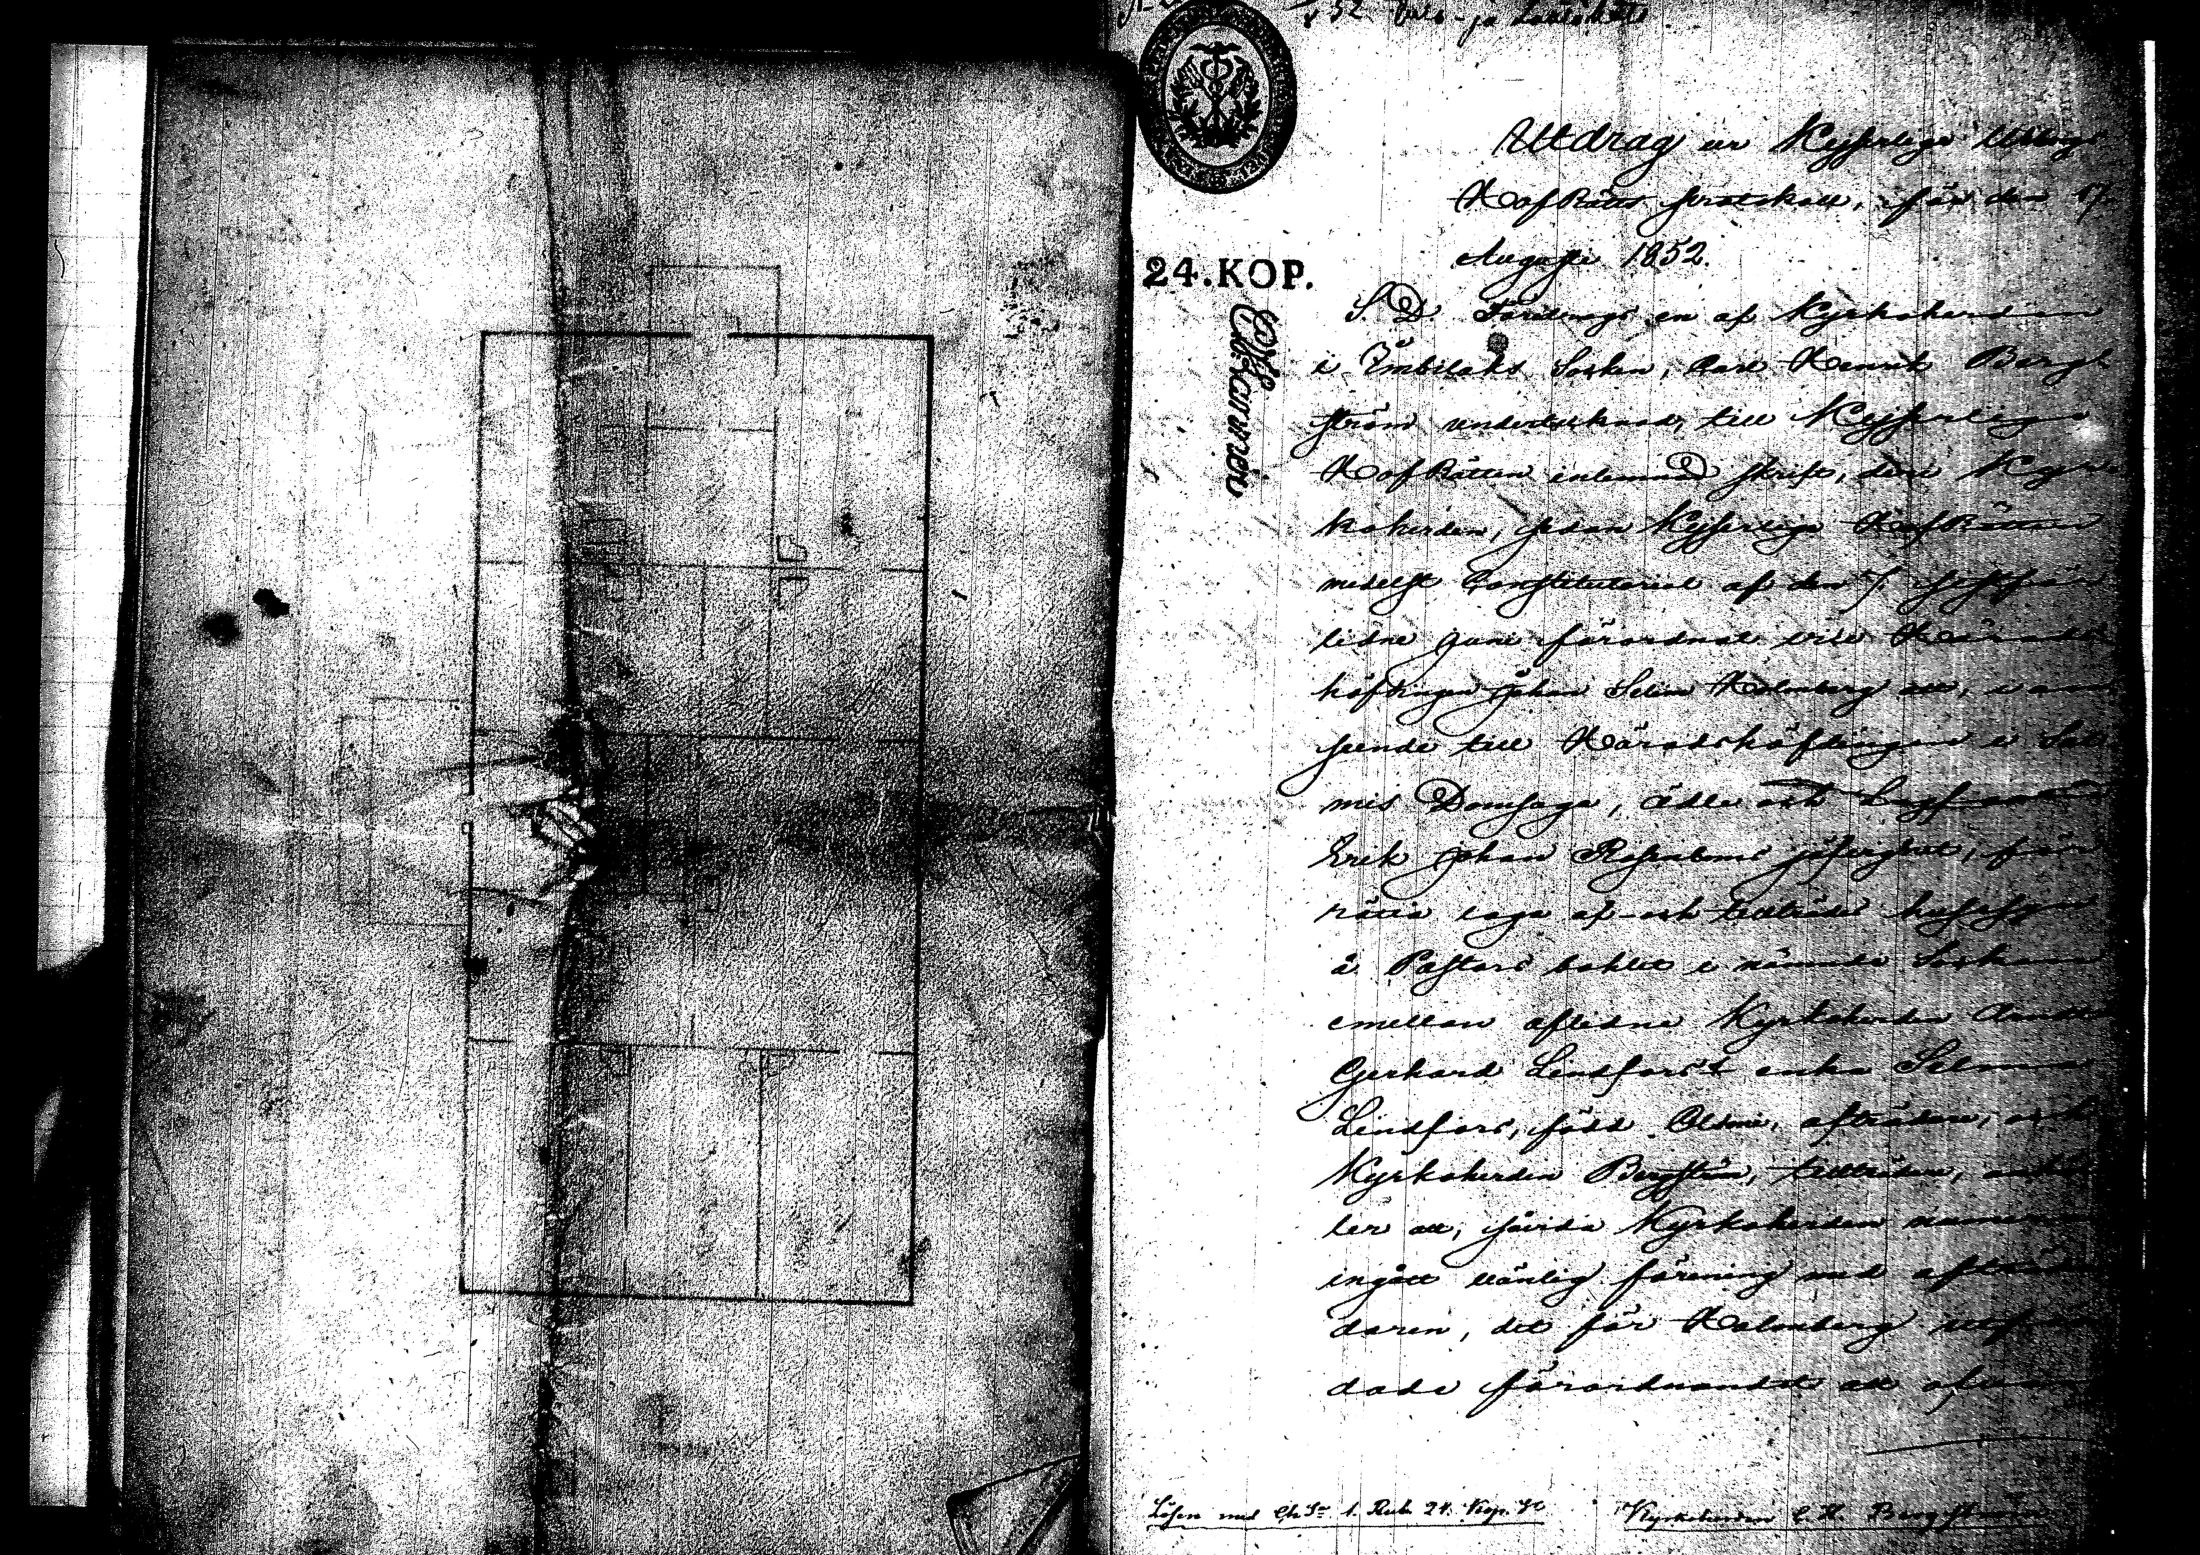 Utdrag ur Kejserliga Wiborgs
HofRätts protokoll, för den 17
Augusti 1852.
24.KOP.
S. D. Föredrogs en af Kyrkoherden
i Imbilaks Socken, Carl Henrik Berg-
ström undertecknad, till Kejserliga
HofRätten inlemnad skrift, deri Kyr-
koherden, sedan Kejserliga HofRätten
medelst Constitutorial af den 7 sistför-
lidne Juni förordnat vice Härads-
höfdingen Johan Selim Holmberg att, i an-
seende till Häradshöfdingens i Sal-
mis Domsaga, ädle och Lagfarne
Erik Johan Rosenboms jäfvighet, för-
rätta laga af- och tillträdes husesyn
å Pastors bohlet i nämnda Socken
emellan aflidne Kyrkoherden
Gerhard Lindfors's enka Selma
Lindfors, född, afträdare, och
Kyrkoherden Bergström, tillträdare, anhål-
ler att, såvida Kyrkoherden numera
ingått vänlig förening med afträ-
daren, det för Holmberg utfär-
dade förordnandet att
Lösen med Ch. S. 1. Rub. 24. Kop. S.
Kyrkoherden C. H. Bergström